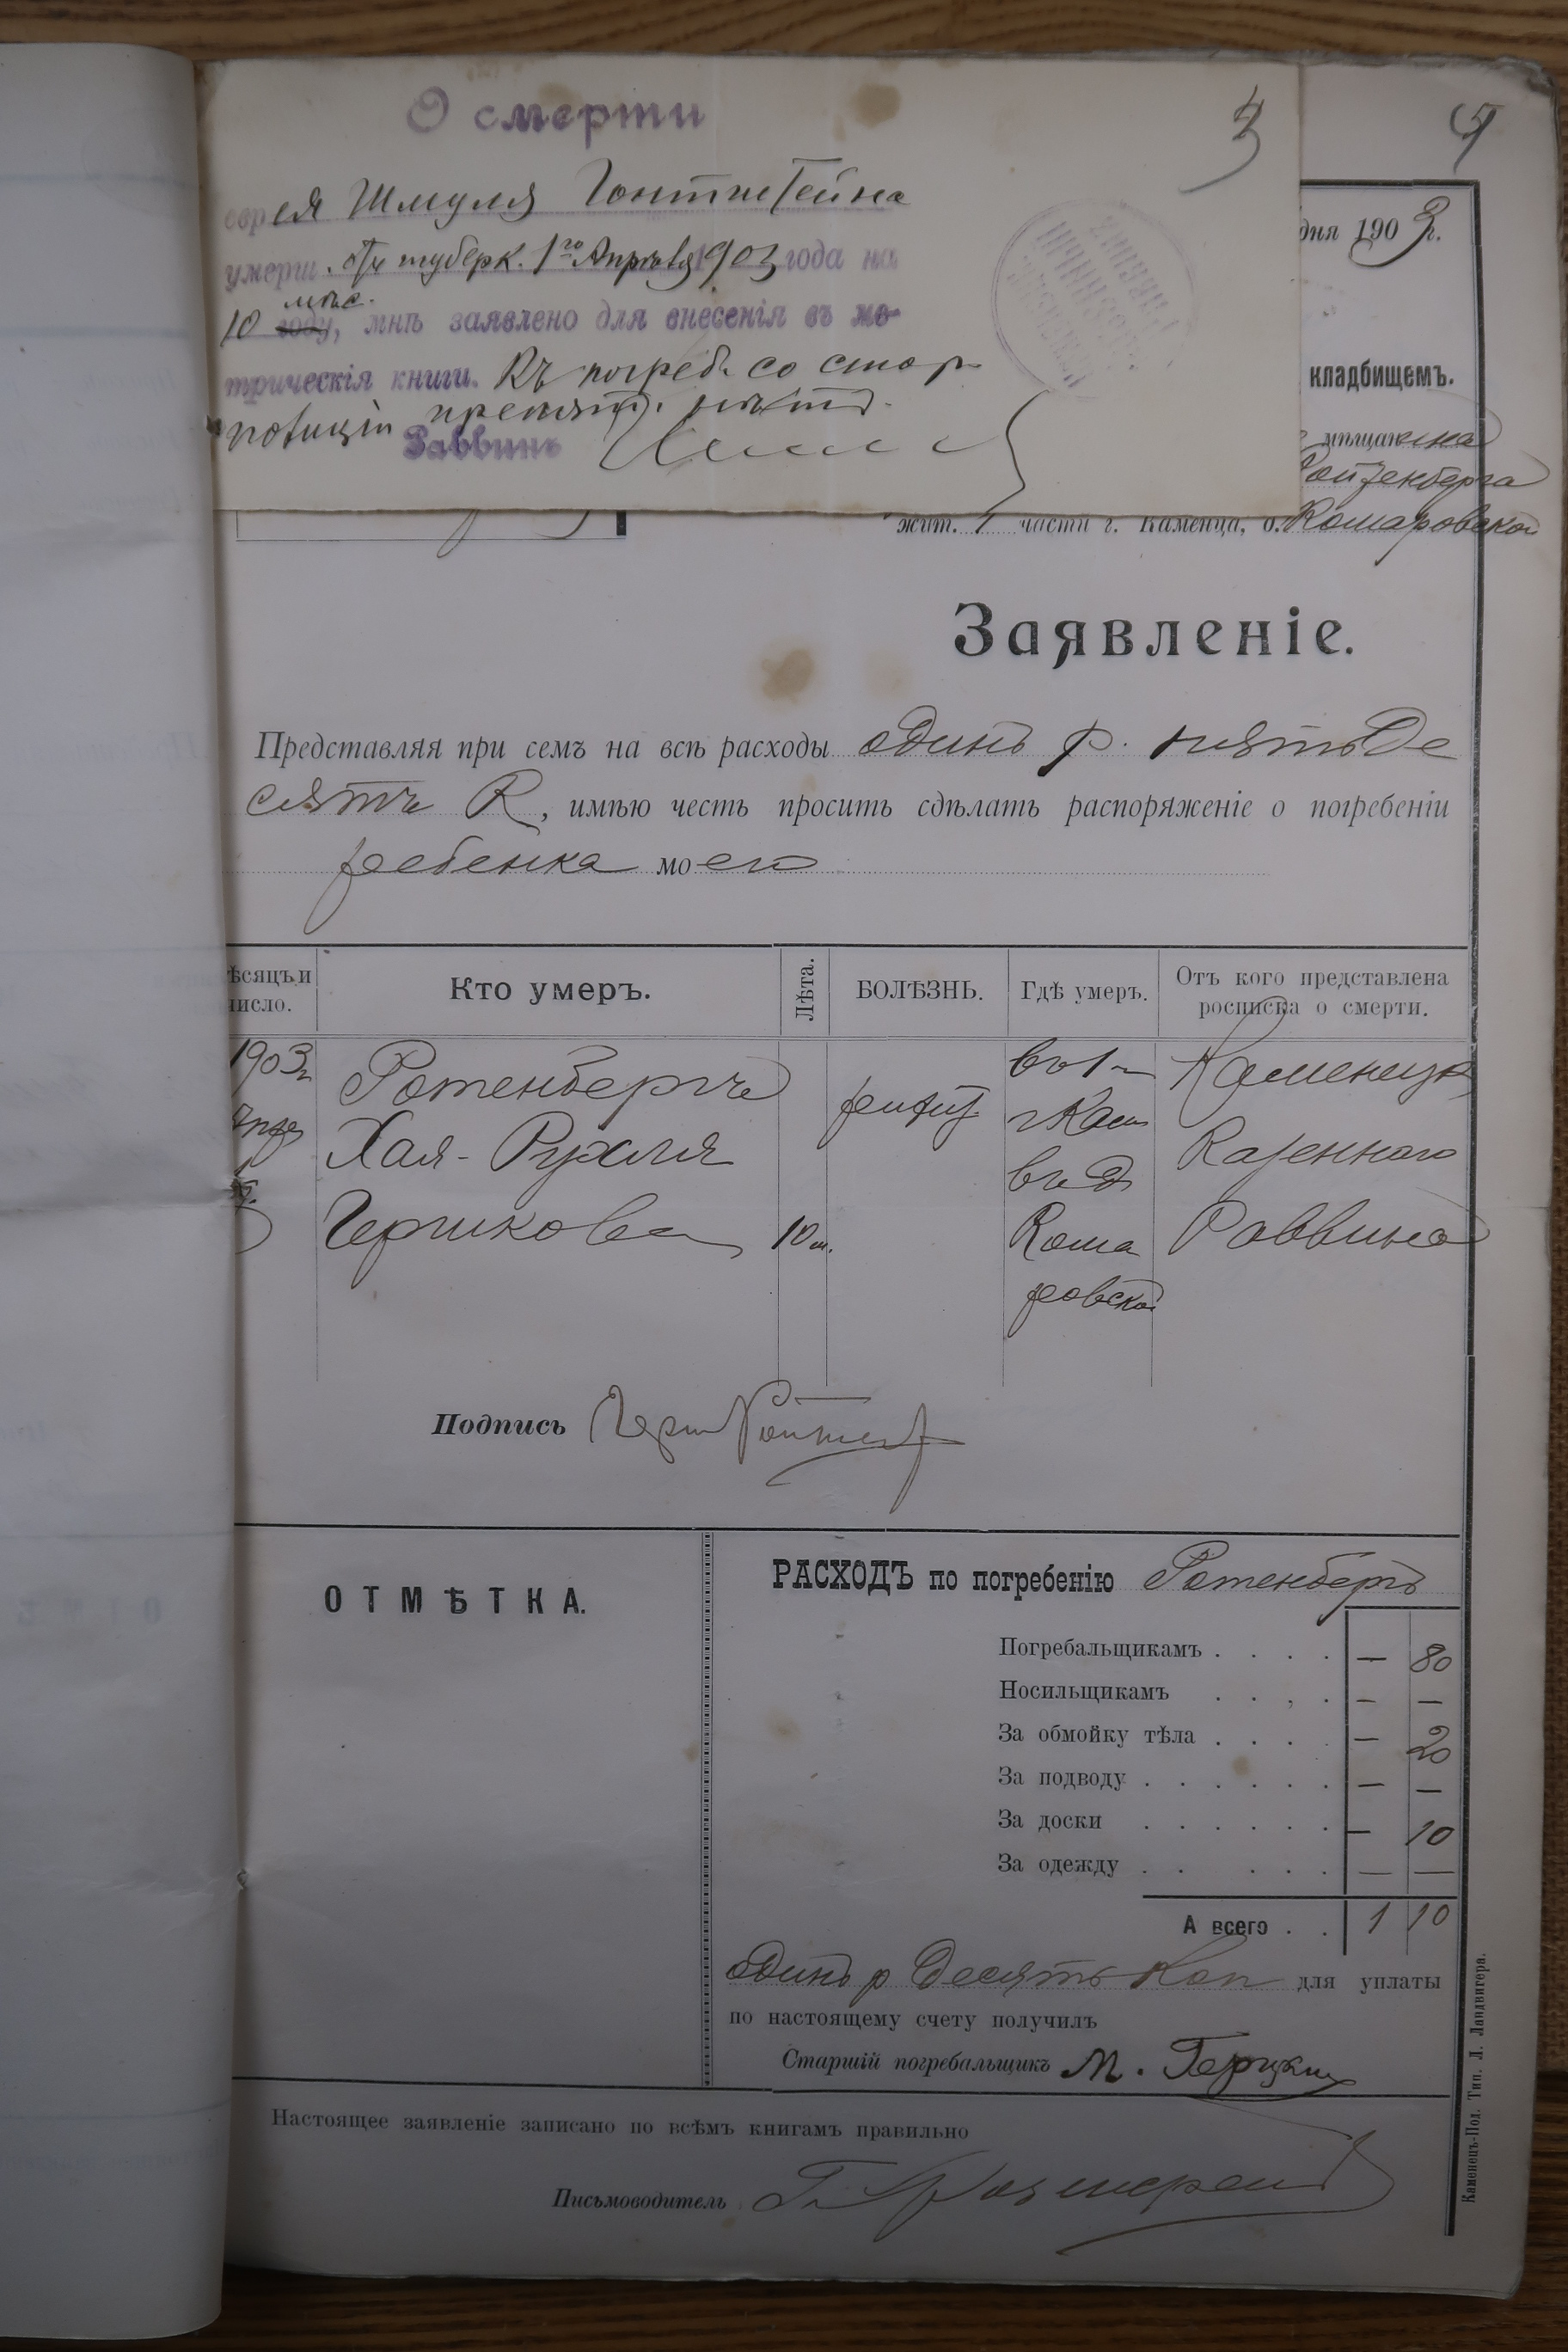 О смерти
3
5
еврея Шмуля Гонтштейна
умерш. от туберк. 1го Апрѣля 1903 года на
мѣс.
10 году, мнѣ заявлено для внесенія въ ме-
трическія книги. Къ погреб. со стор.
полиціи препятст. нѣтъ.
Раввинъ
дня 1903 г.
кладбищемъ.
мѣщанина
Ройзенберга
жит. 1 части г. Каменца, д. Комаровской
Заявленіе.
Представляя при семъ на всѣ расходы одинъ р. пятьде
сятъ К, имѣю честь просить сдѣлать распоряженіе о погребеніи
ребенка моего
ѣсяцъ и число.
Кто умеръ.
Лѣта.
БОЛѢЗНЬ.
Гдѣ умеръ.
Отъ кого представлена росписка о смерти.
1903 г. Ротенбергъ въ 1 Каменецк
Хая-Рухля г Кам Казеннаго
въ д
Гершкова 10 м. Кома Раввина
ровской
Подпись Герш
ОТМѢТКА.
РАСХОДЪ по погребенію Ротенбергъ
Погребальщикамъ . . . . — 80
Носильщикамъ . . . . — —
За обмойку тѣла . . . . — 20
За подводу . . . . . . — —
За доски . . . . . . — 10
За одежду . . . . . — —
А всего . . 1 10
одинъ р десять коп для уплаты
по настоящему счету получилъ
Старшій погребальщикъ М.
Настоящее заявленіе записано по всѣмъ книгамъ правильно
Письмоводитель
Каменецъ-Под. Тип. Л. Ландвигера.